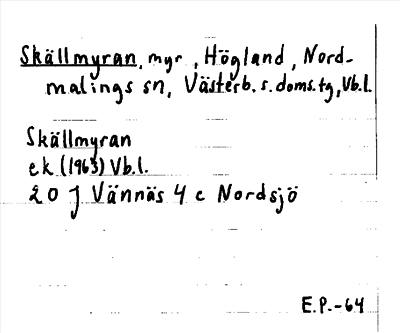 Skällmyran, myr, Högland, Nord-
malings sn, Västerb. s. doms. tg, Vb.l.
Skällmyran
ek (1963) Vb.l.
20 J Vännäs 4 c Nordsjö
E.P.-64